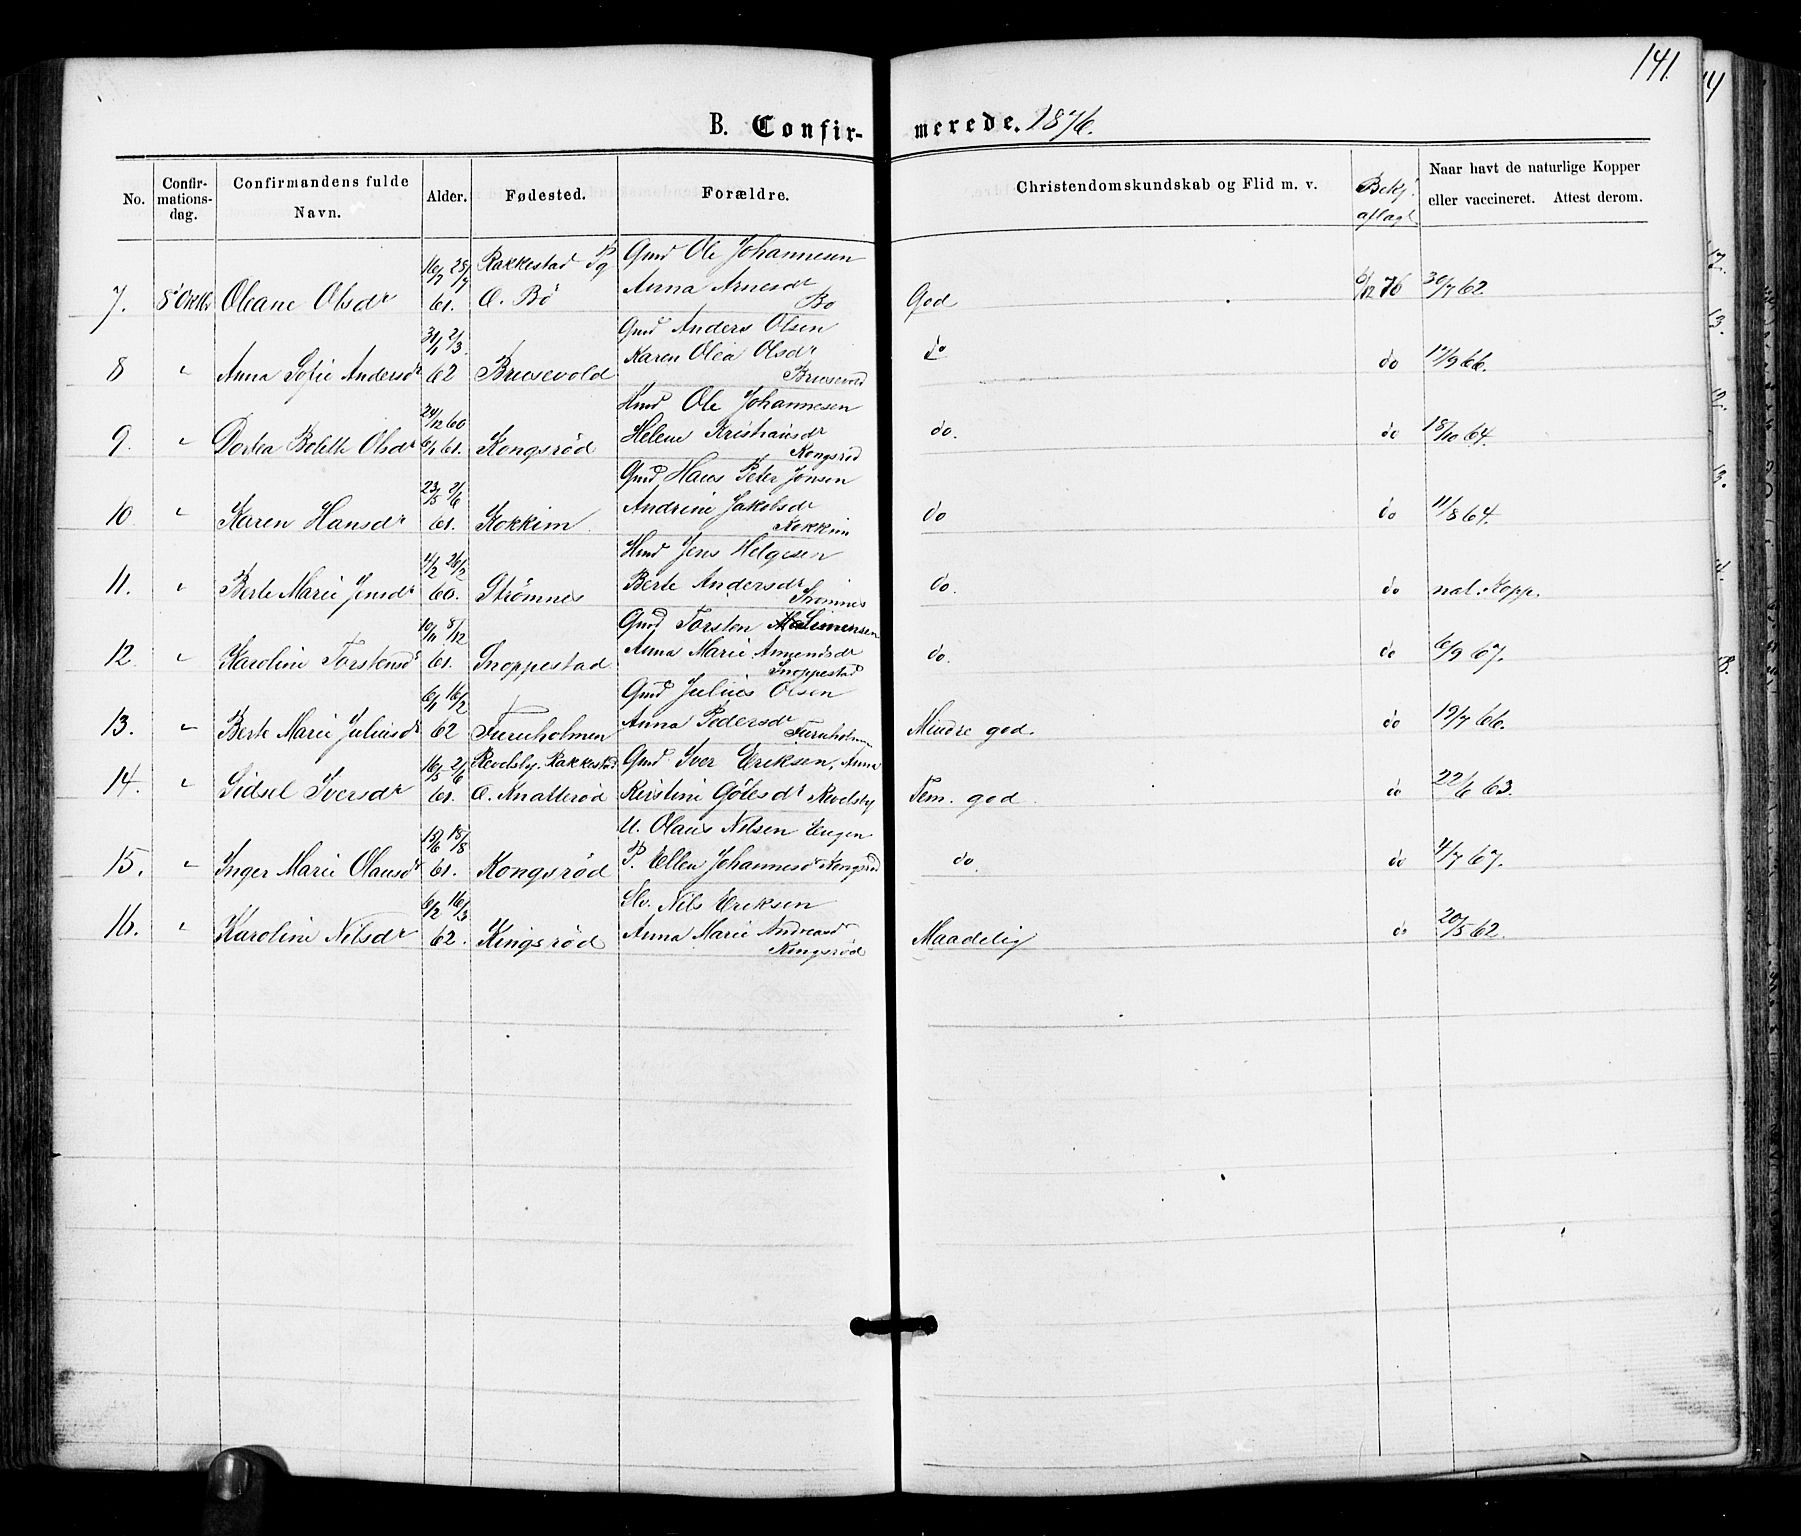 141.
B. Confir- merede. 1876.
No. Confir-mations-dag. Confirmandens fulde Navn. Alder. Fødested. Forældre. Christendomskundskab og Flid m. v. Bekj. aflagt Naar havt de naturlige Kopper eller vaccineret. Attest derom.
16/7 28/7 Rakkestad Pg Gmd Ole Johannesen
7. 8 Oktbr Oleane Olsdr 61. O. Bö Anna Arnesdr Bo God 6/12 76 30/7 62
31/1 2/3 Gmd Anders Olsen
8 " Anna Sofie Andersdr 62 Brusevold Karen Olea Olsdr Brusevold do do 12/9 66.
24/12 60 Hmd Ole Johannesen
9. " Dortea Bolette Olsdr 6/1 61. Kongsröd Helene Kristiansdr Kongsröd do. do 18/10 64.
23/5 2/6 Gmd Hans Peter Jonsen
10 " Karen Hansdr 61. Kokkim Andrine Jakobsdr Kokkim do do 11/8 64.
4/2 26/2 Hmd Jens Helgesen
11. " Berte Marie Jensdr 60. Strömnes Berte Andersdr Strömnes do. do nat. Kopp.
10/11 8/12 Gmd Torsten Simensen
12 " Karoline Torstensdr 61. Snoppestad Anna Marie Amundsdr Snoppestad do. do 6/9 67.
6/1 16/2 Gmd Julius Olsen
13. " Berte Marie Juliusdr 62 Furuholmen Anna Pedersdr Furuholmen Mindre god. do 19/7 66.
16/5 2/6 Revelsby. Rakkestad Gmd Iver Eriksen, Anna
14. " Sidsel Iversdr 61. O. Knatteröd Kirstine Götesdr Revelsby Tem. god do 22/6 63.
18/6 18/8 U. Olaus Nilsen Eugen
15. " Inger Marie Olausdr 61. Kongsröd P. Ellen Johannesdr Kongsröd do. do 4/7 67.
6/2 16/3 Slv. Nils Eriksen
16. " Karoline Nilsdr 62. Kingsröd Anna Marie Andreasdr Kingsröd Maadelig do 20/5 62.